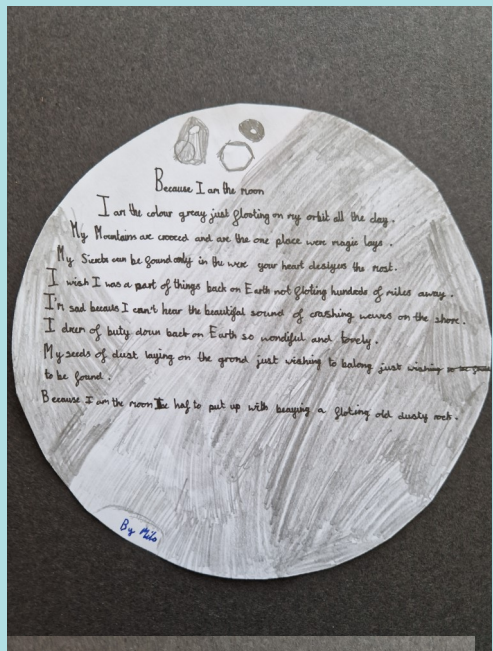 Because I am the moon
I am the colour greay just floating on my orbit all the day.
My Mountains are crooced and are the one place were magic lays.
My can be found only in the were your heart the most.
I wish I was a part of things back on Earth not floting hundreds of miles away.
I'm sad becaus I can't hear the beautiful sound of crashing on the shore.
I drem of buty down back on Earth so wondiful and lovely.
My seeds of dust laying on the grond just wishing to balong just wishing
to be found.
Because I am the moon I haf to put up with beaying a floting old dusty rock.
By Milo